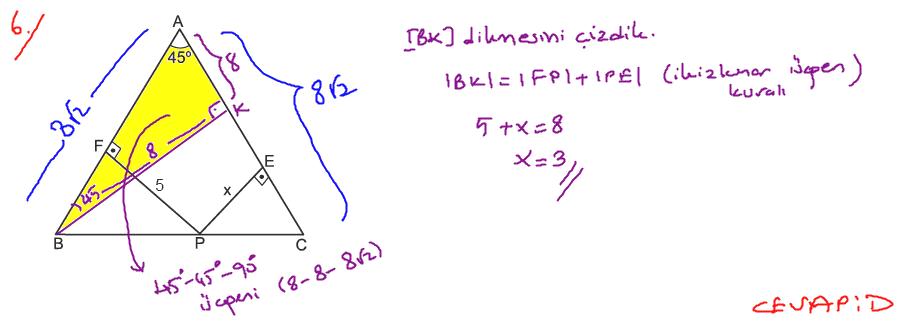 6.
A
45°
8
K
8√2
8√2
F
8
E
5
x
45
B
P
C
45°-45°-90°
üçgeni (8-8-8√2)
[BK] dikmesini çizdik.
|BK|=|FP|+|PE| (ikizkenar üçgen
kuralı)
5+x=8
x=3
CEVAP:D